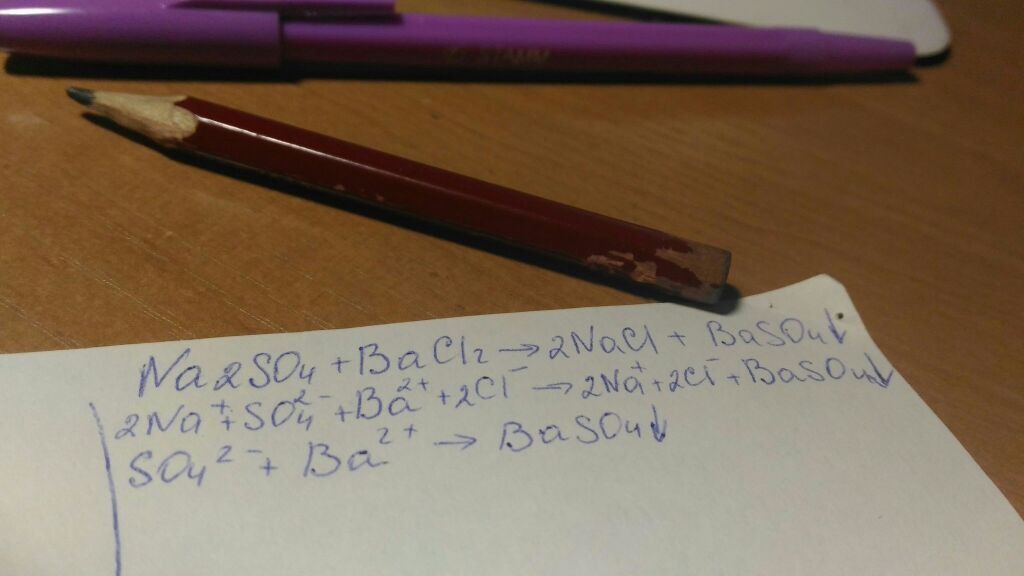 Na2SO4 + BaCl2 → 2NaCl + BaSO4↓
2Na⁺ + SO4²⁻ + Ba²⁺ + 2Cl⁻ → 2Na⁺ + 2Cl⁻ + BaSO4↓
SO4²⁻ + Ba²⁺ → BaSO4↓